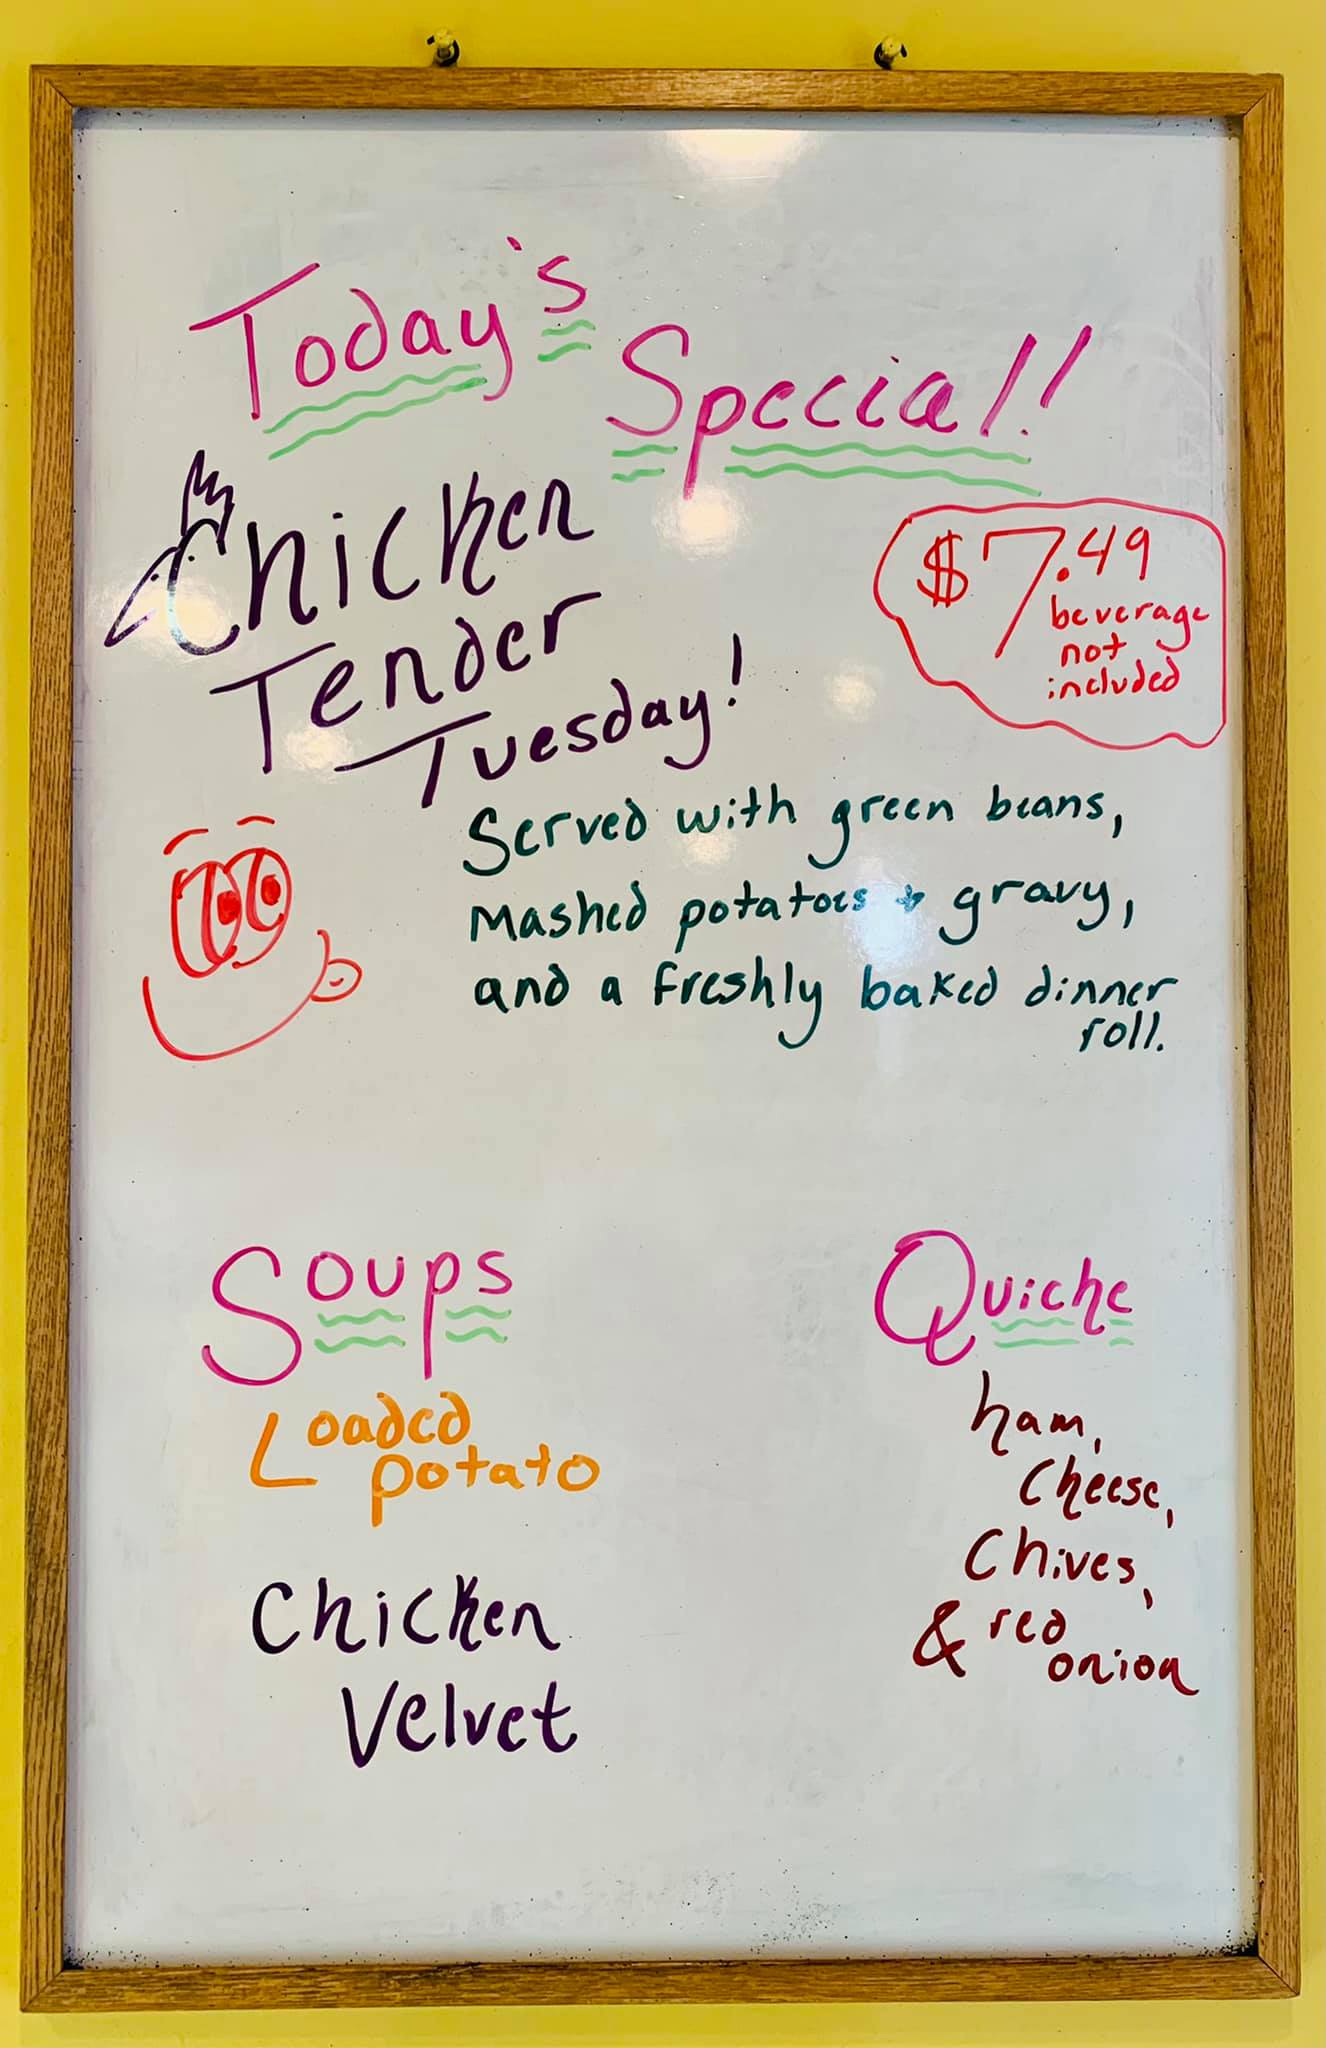 Today's
Special!
Chicken
Tender
Tuesday!
$7.49
beverage
not
included
Served with green beans,
mashed potatoes + gravy,
and a freshly baked dinner
roll.
Soups
Loaded
potato
Chicken
Velvet
Quiche
ham,
cheese,
Chives,
& red
onion